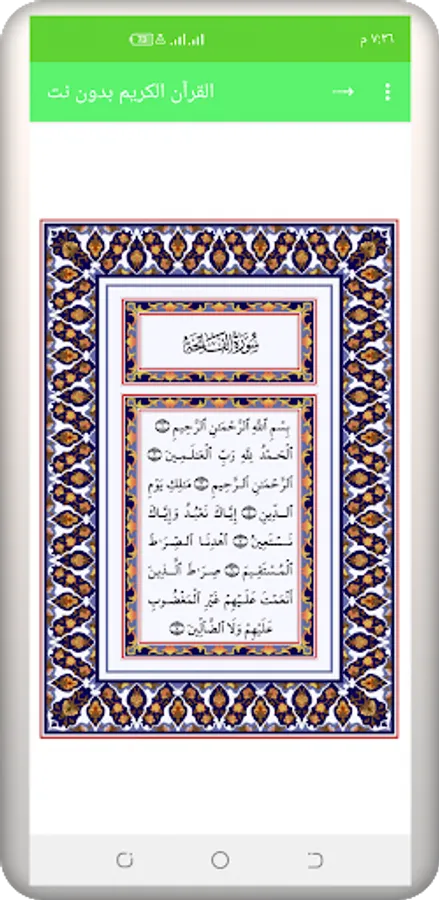 ٧:٣٦ م
73
القرآن الكريم بدون نت
سُورَةُ الفَاتِحَةِ
بِسْمِ ٱللَّهِ ٱلرَّحْمَٰنِ ٱلرَّحِيمِ ۝
ٱلْحَمْدُ لِلَّهِ رَبِّ ٱلْعَٰلَمِينَ ۝
ٱلرَّحْمَٰنِ ٱلرَّحِيمِ ۝ مَٰلِكِ يَوْمِ
ٱلدِّينِ ۝ إِيَّاكَ نَعْبُدُ وَإِيَّاكَ
نَسْتَعِينُ ۝ ٱهْدِنَا ٱلصِّرَٰطَ
ٱلْمُسْتَقِيمَ ۝ صِرَٰطَ ٱلَّذِينَ
أَنْعَمْتَ عَلَيْهِمْ غَيْرِ ٱلْمَغْضُوبِ
عَلَيْهِمْ وَلَا ٱلضَّآلِّينَ ۝